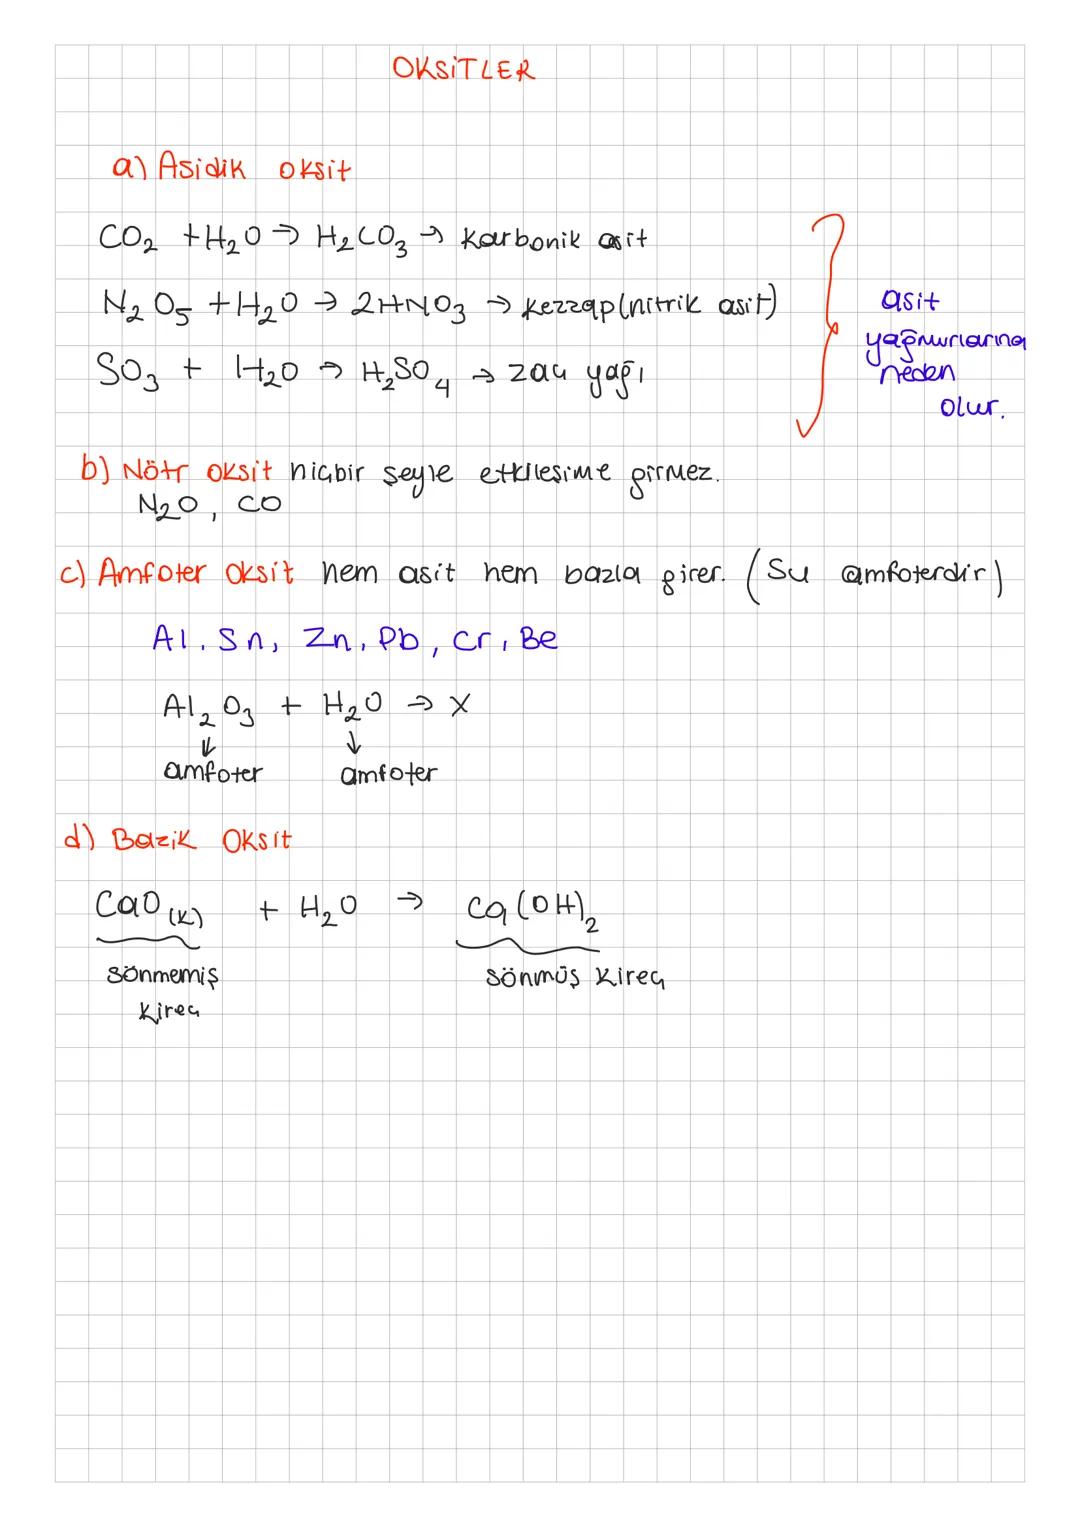 OKSİTLER
a) Asidik oksit
CO₂ + H₂O → H₂CO₃ → Karbonik asit
N₂O₅ + H₂O → 2HNO₃ → Kezzap (nitrik asit)
SO₃ + H₂O → H₂SO₄ → zaç yağı
asit
yağmurlarına
neden
olur.
b) Nötr oksit hiçbir şeyle etkileşime girmez.
N₂O, CO
c) Amfoter Oksit hem asit hem bazla girer. (Su amfoterdir)
Al, Sn, Zn, Pb, Cr, Be
Al₂O₃ + H₂O → X
↓ ↓
amfoter amfoter
d) Bazik Oksit
CaO(k) + H₂O → Ca(OH)₂
sönmemiş sönmüş kireç
kireç